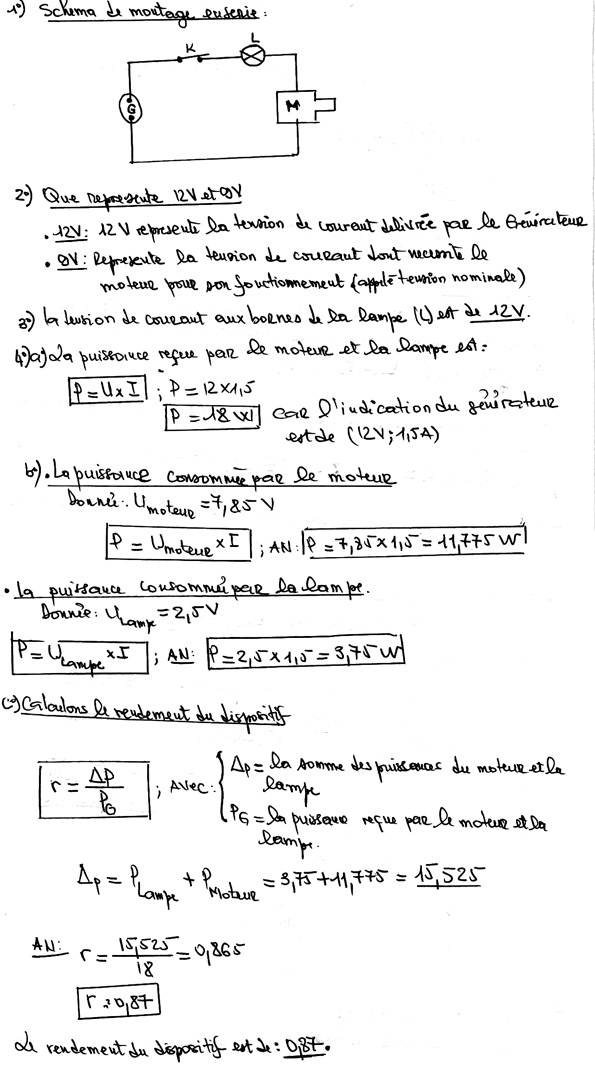 1°) Schéma de montage en série :
K
L
G
M
2°) Que représente 12V et 8V
• 12V : 12V représente la tension de courant délivrée par le Générateur
• 8V : Représente la tension de courant dont necessite le
moteur pour son fonctionnement (appelé tension nominale)
3°) la tension de courant aux bornes de la lampe (L) est de 12V.
4°) a) La puissance reçue par le moteur et la lampe est :
P = U x I ; P = 12 x 1,5
P = 18 W car l'indication du générateur
est de (12V ; 1,5A)
b°) • La puissance consommée par le moteur
Donnée : U moteur = 7,85 V
P = U moteur x I ; AN : P = 7,85 x 1,5 = 11,775 W
• la puissance consommée par la lampe.
Donnée : U Lampe = 2,5 V
P = U Lampe x I ; AN : P = 2,5 x 1,5 = 3,75 W
c°) Calculons le rendement du dispositif
r = ΔP / PG ; AVEC : { ΔP = la somme des puissances du moteur et la
lampe
PG = la puissance reçue par le moteur et la
lampe.
ΔP = P Lampe + P Moteur = 3,75 + 11,775 = 15,525
AN : r = 15,525 / 18 = 0,865
r = 0,87
Le rendement du dispositif est de : 0,87.